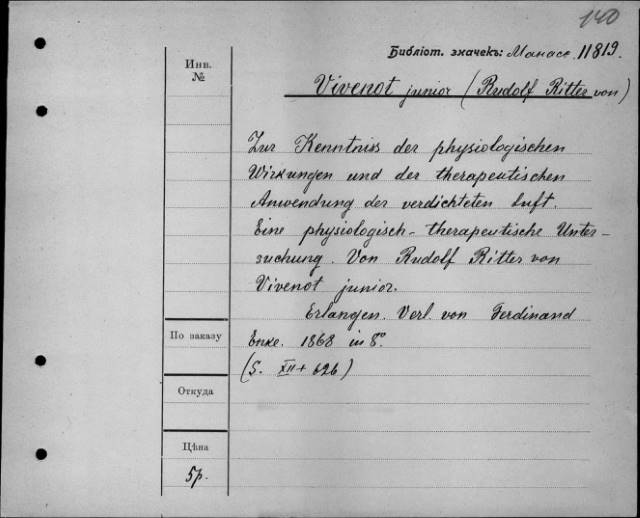 140
Библіот. значекъ: Манасс. 11819.
Инв.
№
Vivenot junior (Rudolf Ritter von)
Zur Kenntniss der physiologischen
Wirkungen und der therapeutischen
Anwendung der verdichteten Luft.
Eine physiologisch-therapeutische Unter-
suchung. Von Rudolf Ritter von
Vivenot junior.
Erlangen. Verl. von Ferdinand
По заказу
Enke. 1868 in 8°.
(S. XII + 626)
Откуда
Цѣна
5р.